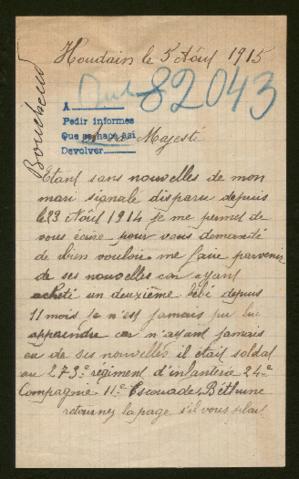 Houdain le 5 Août 1915
82043
Boucheud
A
Pedir informes
Que se haga así
Devolver
Sa Majesté
Etant sans nouvelles de mon
mari signale disparu depuis
le 23 Aout 1914 je me permet de
vous écrire pour vous demandé
de bien vouloir me faire parvenir
de ses nouvelles car ayant
acheté un deuxième bébé depuis
11 mois je n'est jamais pu lui
apprendre car n'ayant jamais
eu de ses nouvelles il était soldat
au 273e régiment d'infanterie 24e
Compagnie 11e Escouade, Béthune
retournez la page s'il vous plait